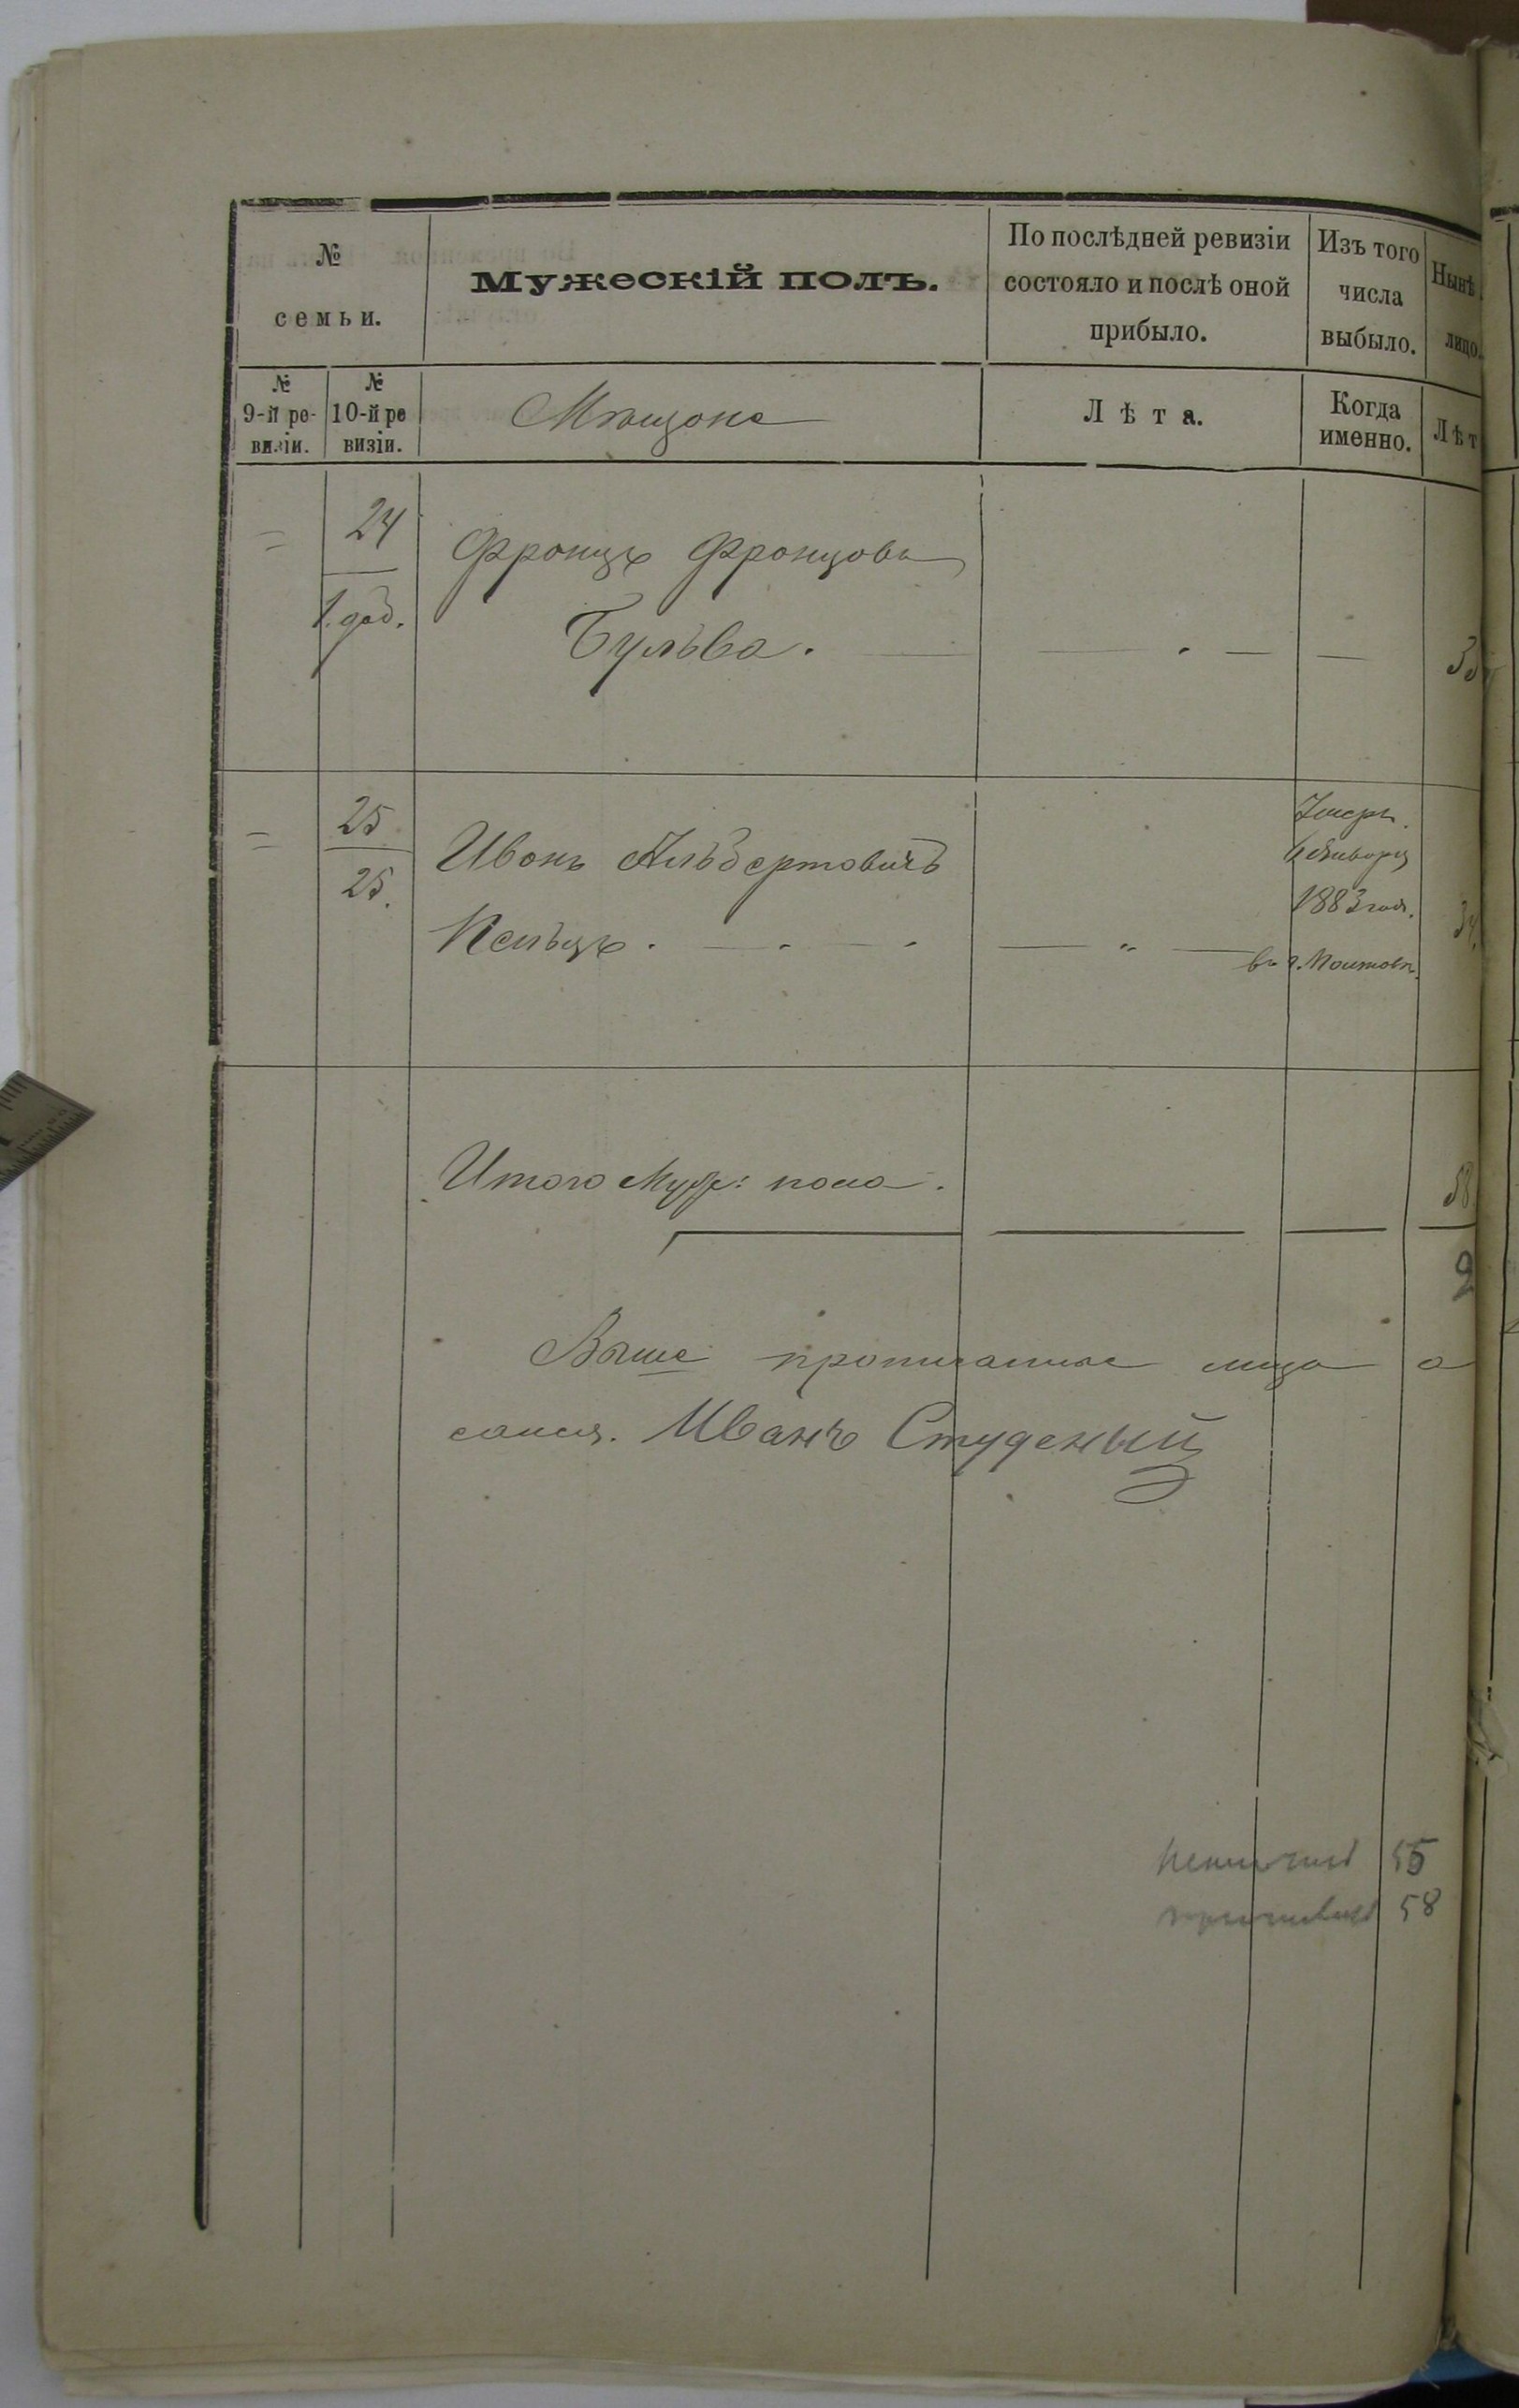 №
семьи.
Мужескій полъ.
По послѣдней ревизіи
состояло и послѣ оной
прибыло.
Изъ того
числа
выбыло.
Нынѣ
лицо.
№
9-й ре-
визіи.
№
10-й ре
визіи.
Мѣщане
Лѣта.
Когда
именно.
Лѣт
= 24
1. доб.
Францъ Францовъ
Бульва.
= 25
25.
Иванъ Альбертовичъ
Кельцъ.
Умеръ.
Января
1883 года.
въ г.
34.
Итого Муж: пола. 58.
2
Выше прописанные лица а
Иванъ Студеный
55
58